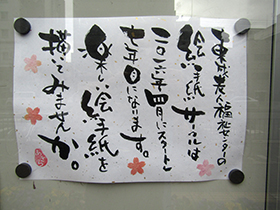 東部老人福祉センターの
絵手紙サークルは
二〇一六年四月にスタートし
七年目になります。
楽しい絵手紙を
描いてみませんか。